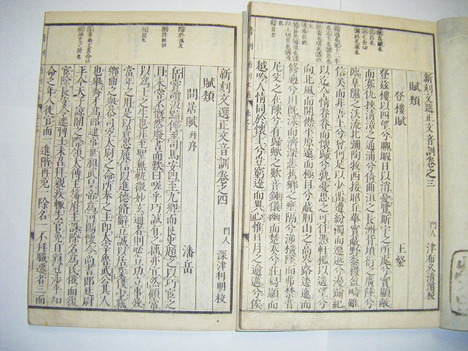 新刻文選正文音訓卷之三
門人 津布久清濱校
賦類
登樓賦
王粲
登茲樓以四望兮聊暇日以消憂覽斯宇之所處兮實顯敞
而寡仇挾清漳之通浦兮倚曲沮之長洲背墳衍之廣陸兮
臨皋隰之沃流北彌陶牧西接昭丘華實蔽野黍稷盈疇雖
信美而非吾土兮曾何足以少留遭紛濁而遷逝兮漫踰紀
以迄今情眷眷而懷歸兮孰憂思之可任憑軒檻以遙望兮
向北風而開襟平原遠而極目兮蔽荊山之高岑路逶迤而
脩迥兮川既漾而濟深悲舊鄉之壅隔兮涕橫墜而弗禁昔
尼父之在陳兮有歸歟之歎音鍾儀幽而楚奏兮莊舄顯而
越吟人情同於懷土兮豈窮達而異心惟日月之逾邁兮俟
新刻文選正文音訓卷之四
門人 深津利明校
賦類
閒居賦并序
潘岳
岳嘗讀汲黯傳至司馬安四至九卿而良史題之以巧宦之
目未嘗不慨然廢書而歎曰嗟乎巧誠有之拙亦宜然顧常
以為士之生也非至聖無軌微妙玄通者則必立功立事效
當年之用是以資忠履信以進德脩辭立誠以居業僕少竊
鄉曲之譽忝司空太尉之命所奉之主即太宰魯武公其人
也舉秀才為郎逮事世祖武皇帝為河陽懷令尚書郎廷尉
平今天子諒闇之際領太傅主簿府主誅除名為民俄而復
官除長安令遷博士未召拜親疾輒去官免自弱冠涉乎知
命之年八徙官而一進階再免一除名一不拜職遷者三而